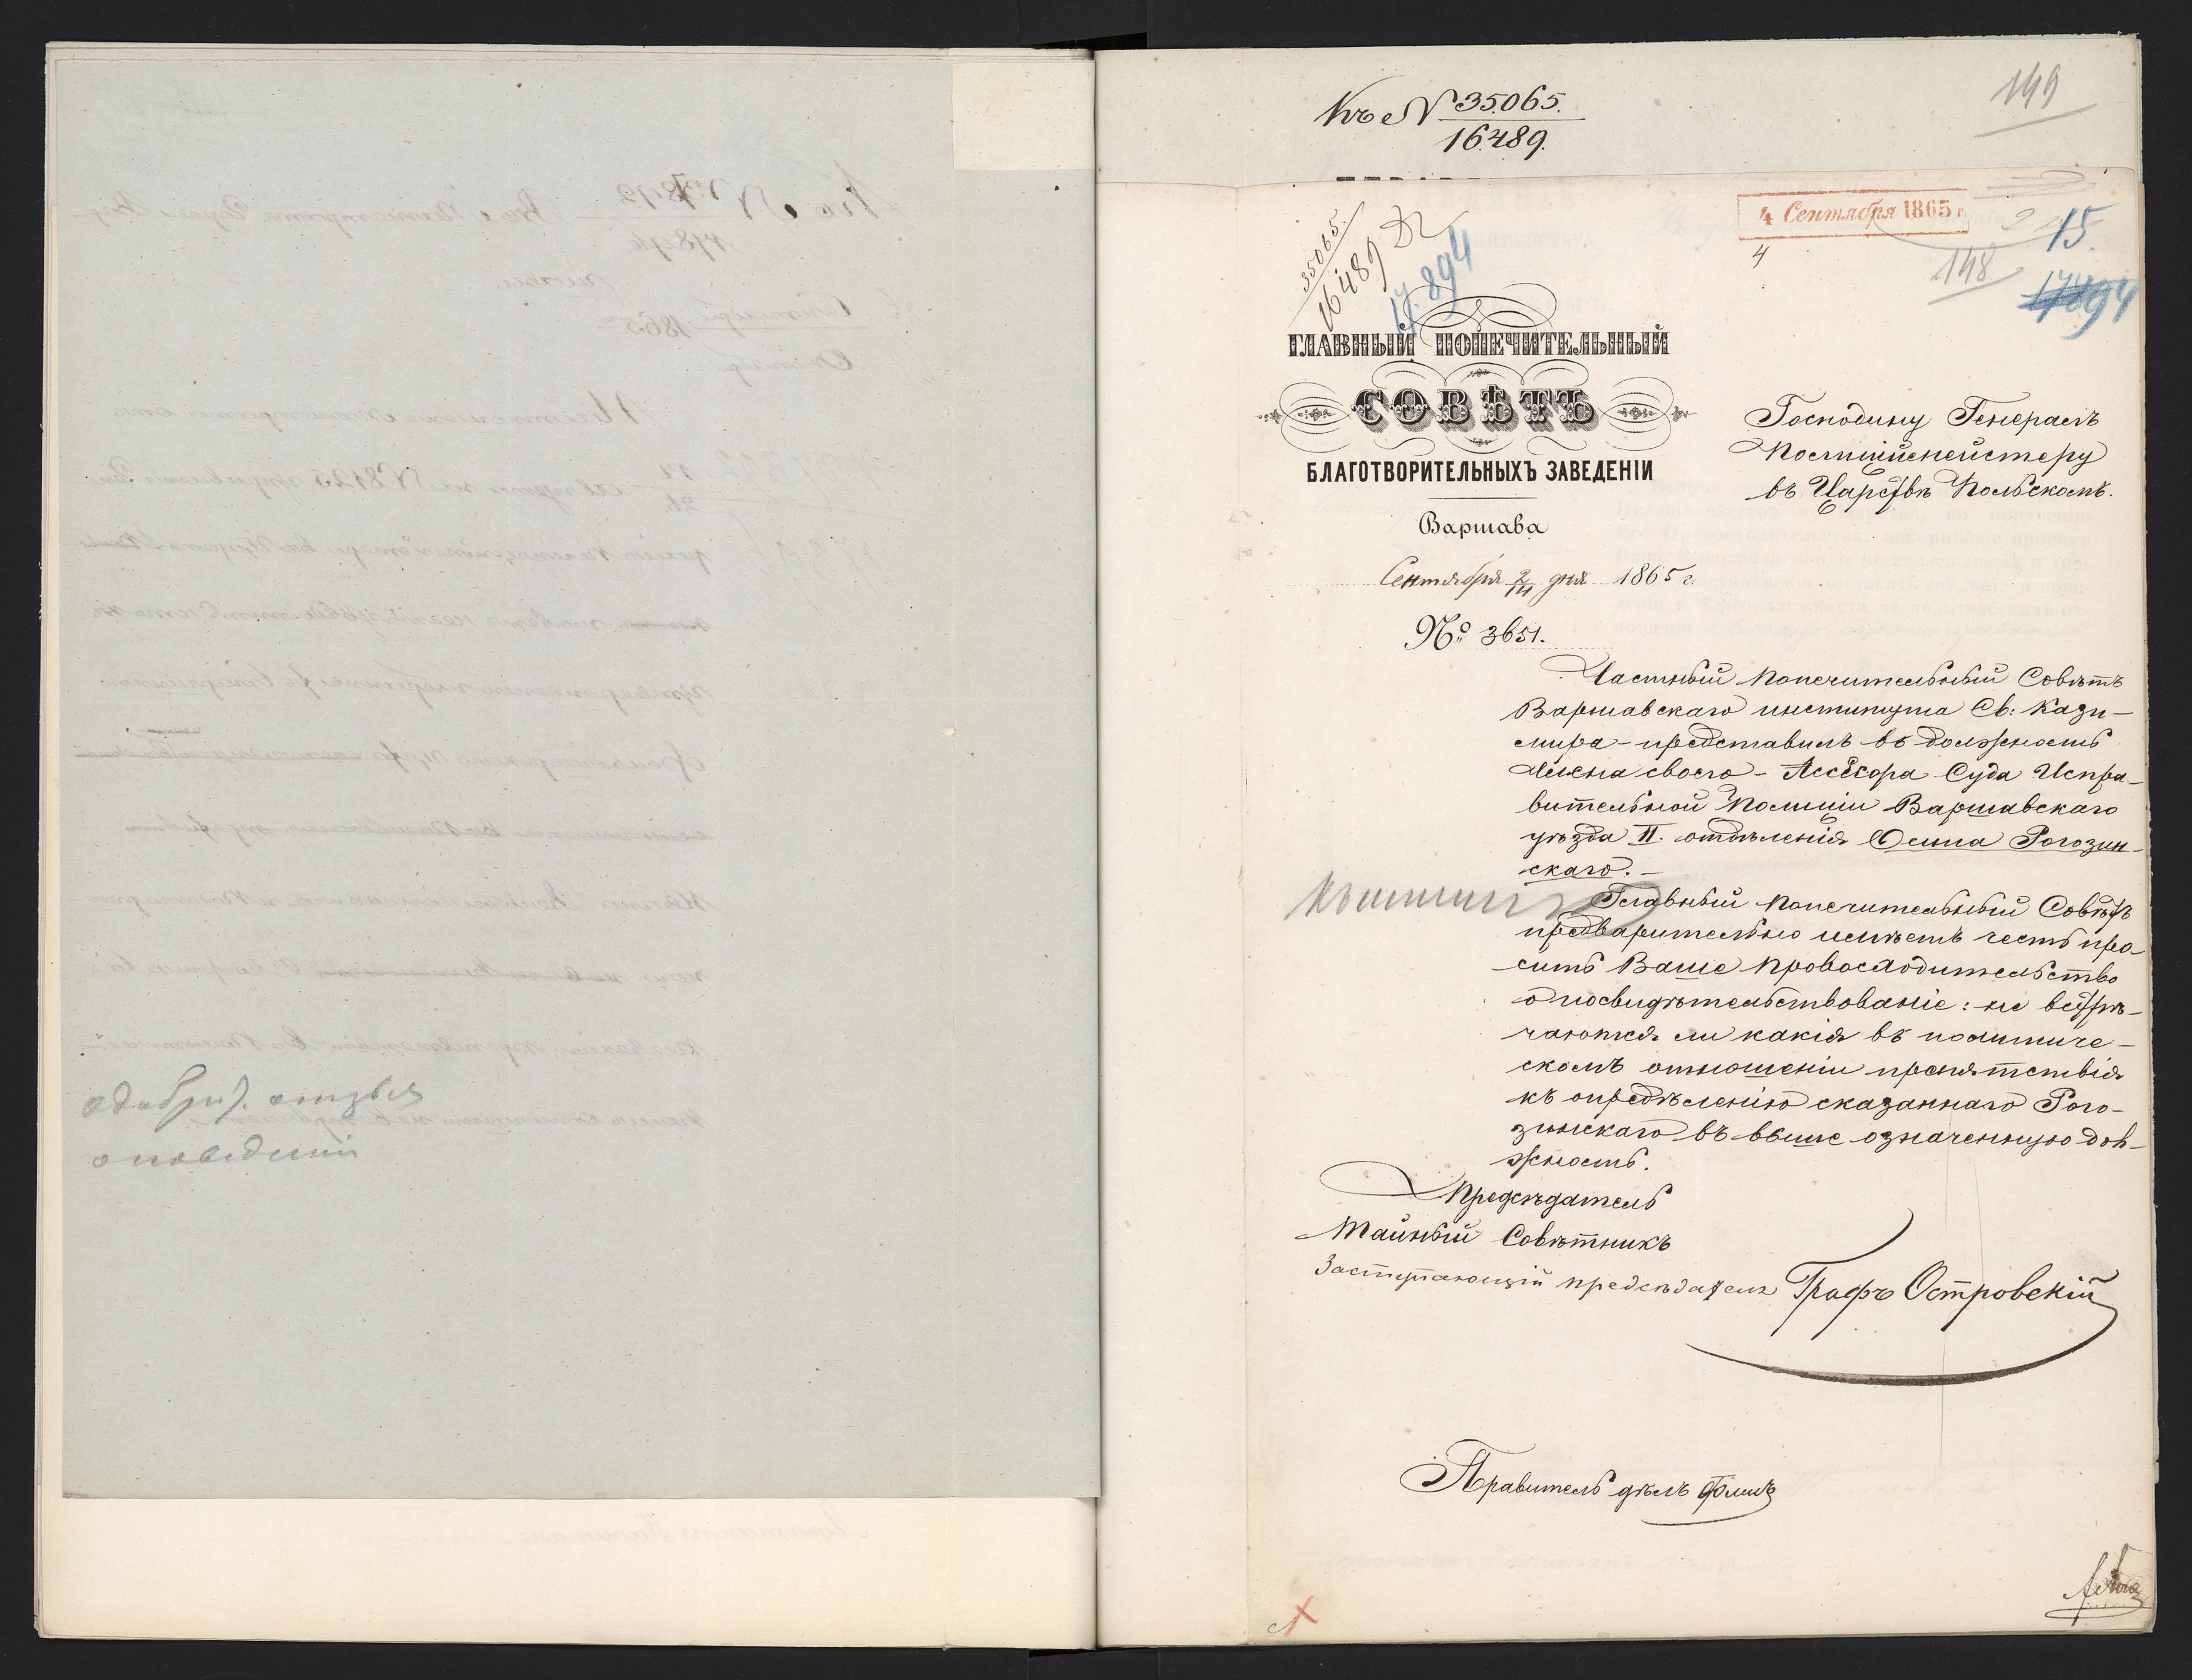 одобрит. отзыв
о поведении
Къ № 35065.
16489.
149
35065.
16489
17.894
4 Сентября 1865 г.
4
2
15.
148
17894
ГЛАВНЫЙ ПОПЕЧИТЕЛЬНЫЙ
СОВѢТЪ
БЛАГОТВОРИТЕЛЬНЫХЪ ЗАВЕДЕНІИ
Варшава
Сентября 2/14 дня 1865 г.
№ 3651.
Господину Генералъ
Полиціймейстеру
въ Царствѣ Польскомъ.
Частный Попечительный Совѣтъ
Варшавскаго института Св: Кази-
мира - представилъ въ должность
Члена своего - Ассесора Суда Испра-
вительной Полиціи Варшавскаго
уѣзда II. отдѣленія Осипа Рогозин-
скаго. -
Главный Попечительный Совѣтъ
предварительно имѣетъ честь про-
сить Ваше Превосходительство
о посвидѣтельствованіе: не встрѣ-
чаются ли какія въ политиче-
скомъ отношеніи препятствія
къ опредѣленію сказаннаго Рого-
зинскаго въ выше означенную дол-
жность.
Предсѣдатель
Тайный Совѣтникъ
Заступающій предсѣдателя Графъ Островскій
Правитель дѣлъ